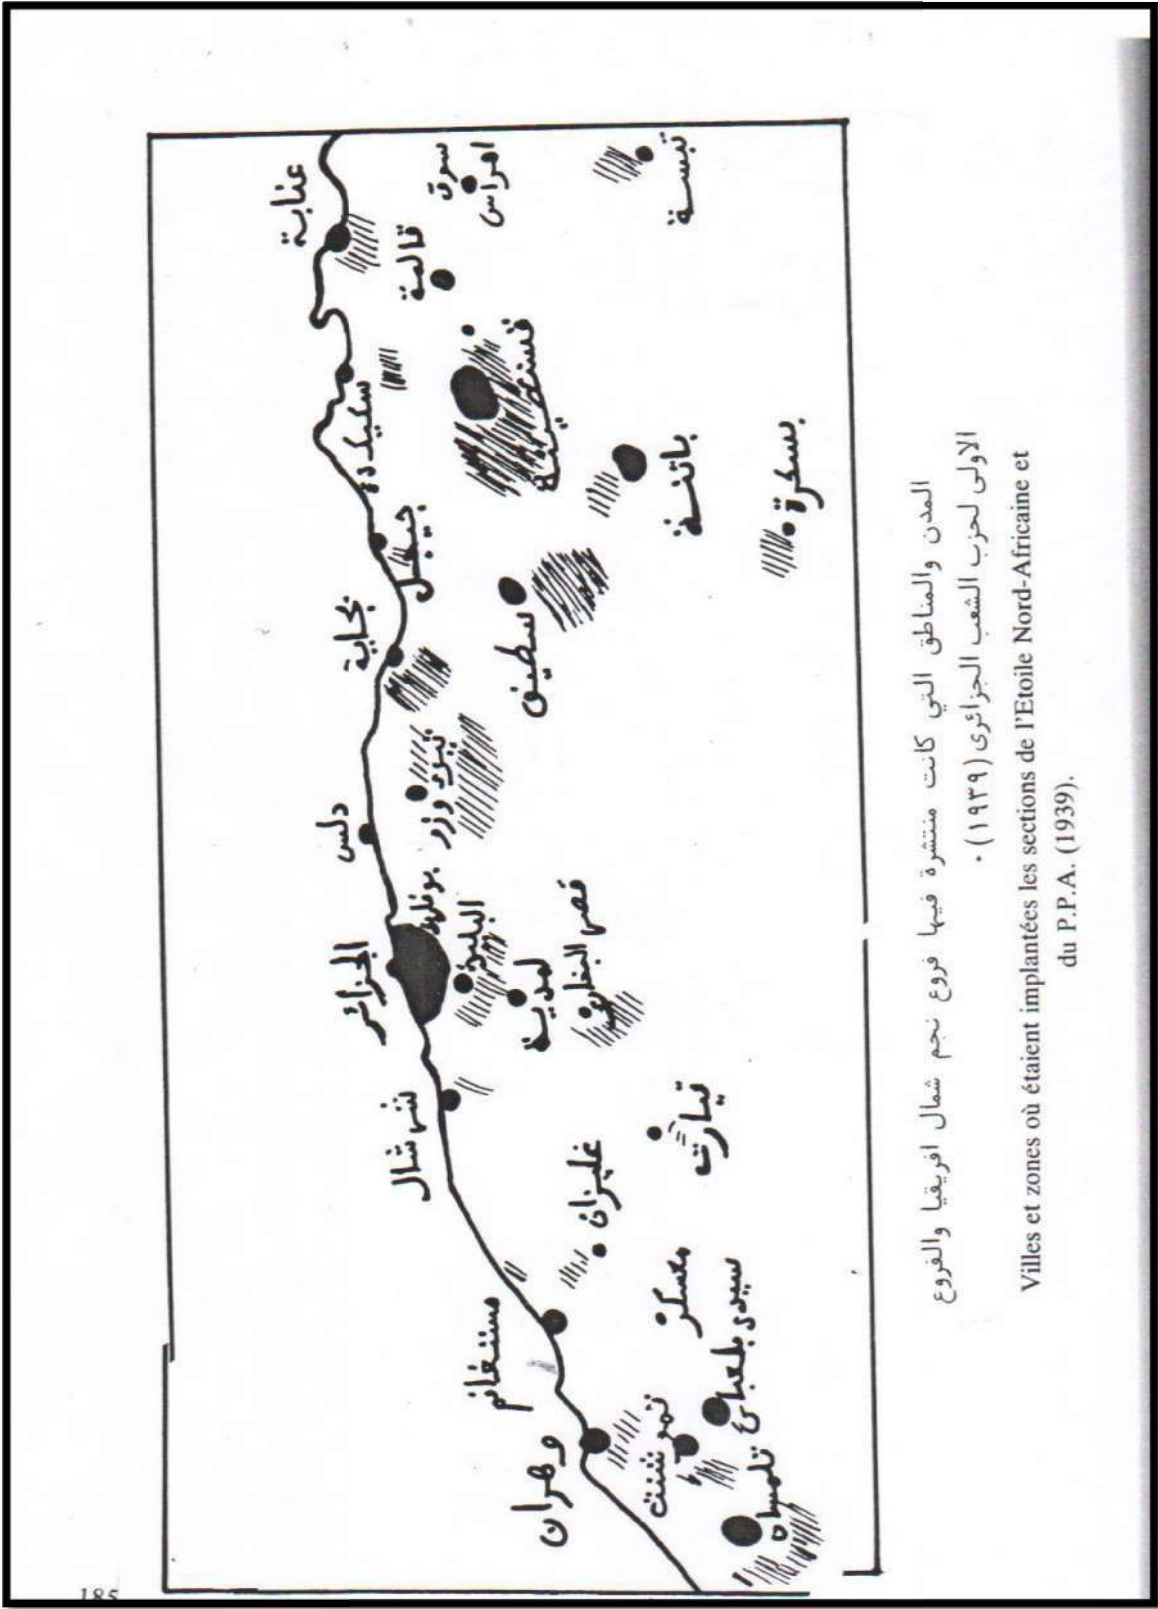 عنابة
سوق
اهراس
قالمة
تبسة
سكيكدة
قسنطينة
جيجل
باتنة
بسكرة
بجاية
سطيف
تيزي وزو
دلس
الجزائر
البليدة
لمدية
قصر البخاري
شرشال
تيارت
غليزان
مستغانم
معسكر
سيدي بلعباس
وهران
تموشنت
تلمسان
المدن والمناطق التي كانت منتشرة فيها فروع نجم شمال افريقيا والفروع
الاولى لحزب الشعب الجزائرى (١٩٣٩) ٠
Villes et zones où étaient implantées les sections de l'Etoile Nord-Africaine et
du P.P.A. (1939).
185